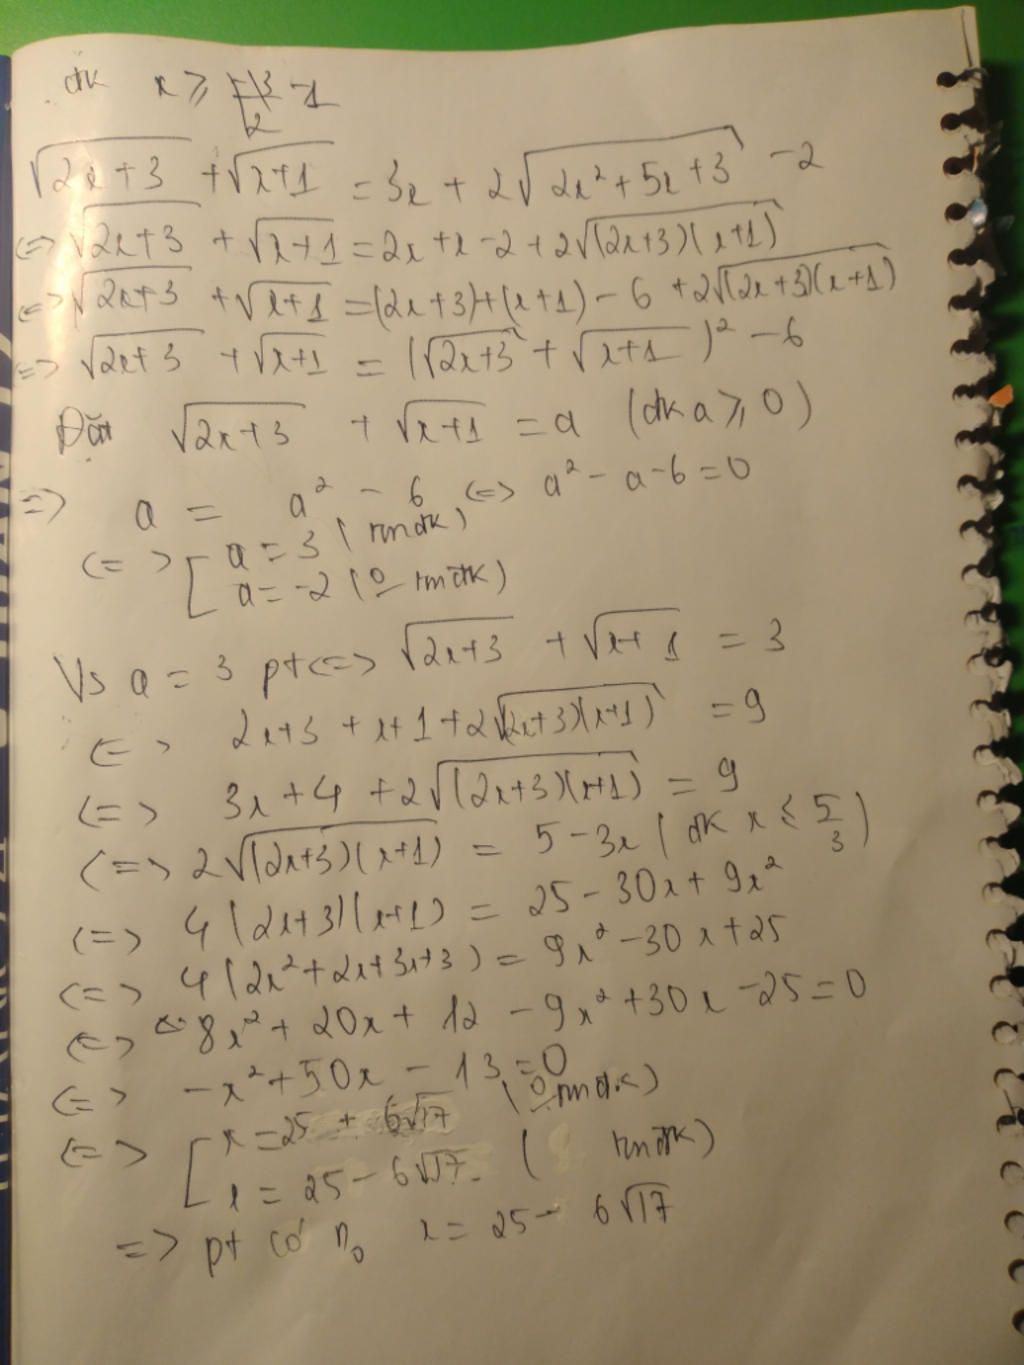 đk x ≥ -1
√(2x+3) + √(x+1) = 3x + 2√(2x²+5x+3) - 2
<=> √(2x+3) + √(x+1) = 2x + x - 2 + 2√((2x+3)(x+1))
<=> √(2x+3) + √(x+1) = (2x+3)+(x+1) - 6 + 2√((2x+3)(x+1))
<=> √(2x+3) + √(x+1) = (√(2x+3) + √(x+1))² - 6
Đặt √(2x+3) + √(x+1) = a (đk a ≥ 0)
=> a = a² - 6 <=> a² - a - 6 = 0
<=> [ a = 3 (tmđk)
a = -2 (0 tmđk)
Vs a = 3 pt <=> √(2x+3) + √(x+1) = 3
<=> 2x+3 + x+1 + 2√((2x+3)(x+1)) = 9
<=> 3x + 4 + 2√((2x+3)(x+1)) = 9
<=> 2√((2x+3)(x+1)) = 5 - 3x (đk x ≤ 5/3)
<=> 4(2x+3)(x+1) = 25 - 30x + 9x²
<=> 4(2x²+2x+3x+3) = 9x² - 30x + 25
<=> 8x² + 20x + 12 - 9x² + 30x - 25 = 0
<=> -x² + 50x - 13 = 0
<=> [ x = 25 + 6√17 (0 tmđk)
x = 25 - 6√17 ( tmđk)
=> pt có n₀ x = 25 - 6√17